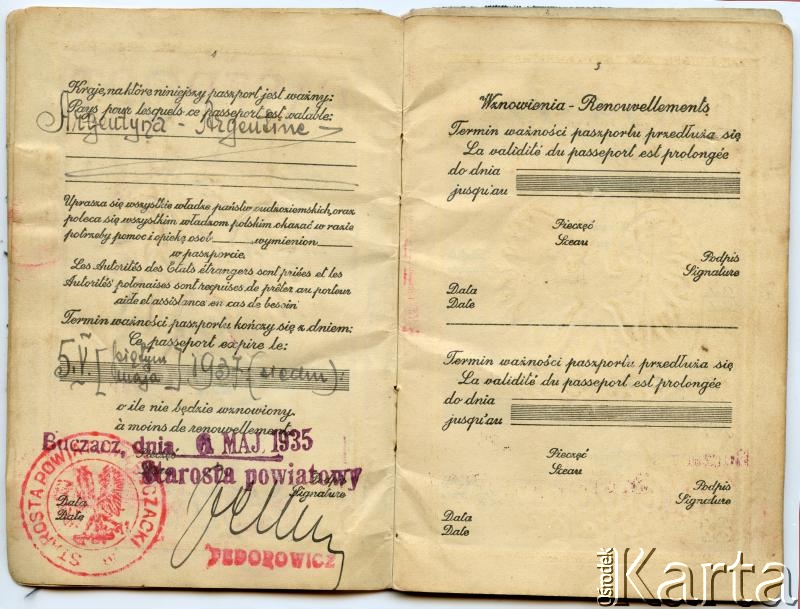 4
Kraje, na które niniejszy paszport jest ważny:
Pays pour lesquels ce passeport est valable:
Argentyna - Argentine
Uprasza się wszystkie władze państw cudzoziemskich, oraz
poleca się wszystkim władzom polskim okazać w razie
potrzeby pomoc i opiekę osob wymienion
w paszporcie.
Les Autorités des Etats étrangers sont priées et les
Autorités polonaises sont requises, de prêter au porteur
aide et assistance en cas de besoin
Termin ważności paszportu kończy się z dniem:
Ce passeport expire le:
5.V. [piętym maja] 1937 (siedm)
o ile nie będzie wznowiony.
à moins de renouvellement.
Buczacz, dnia 6 MAJ 1935
Pieczęć
Starosta powiatowy
Podpis
Signature
Data
Date
STAROSTA POWIATOWY BUCZACKI
FEDOROWICZ
5
Wznowienia - Renouvellements
Termin ważności paszportu przedłuża się
La validité du passeport est prolongée
do dnia
jusqu'au
Pieczęć
Sceau
Podpis
Signature
Data
Date
Termin ważności paszportu przedłuża się
La validité du passeport est prolongée
do dnia
jusqu'au
Pieczęć
Sceau
Podpis
Signature
Data
Date
Ośrodek
Karta